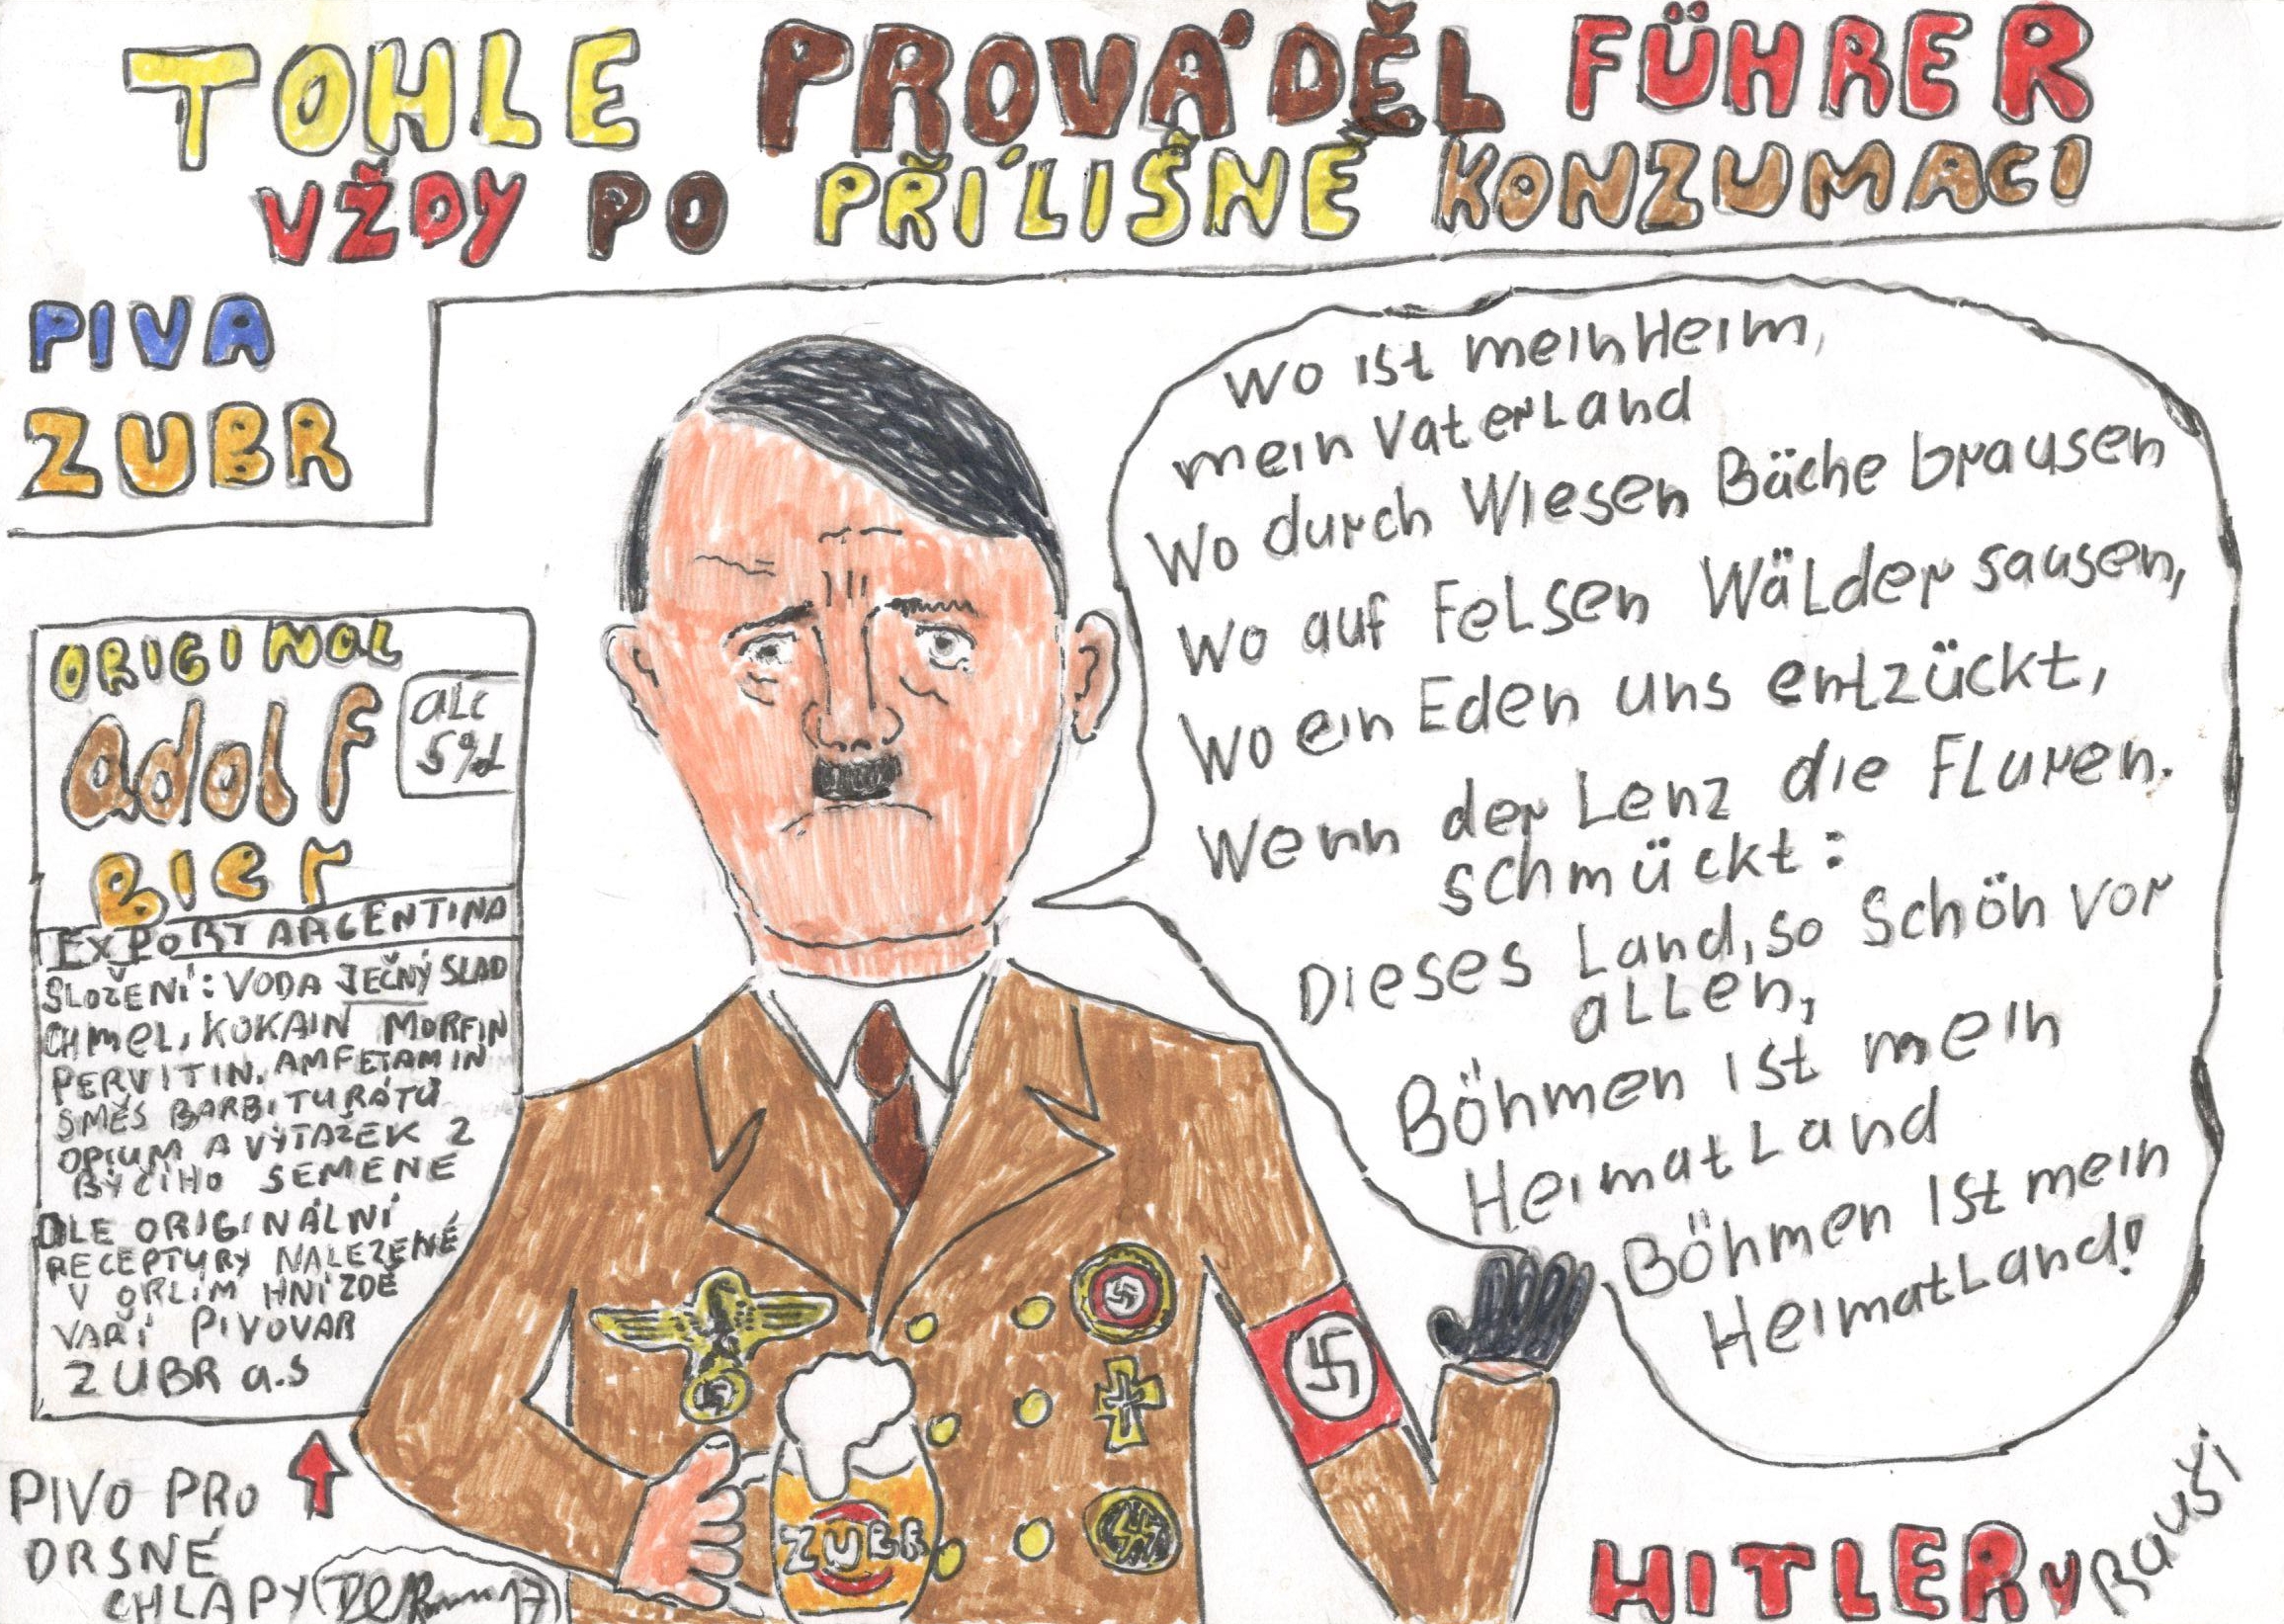 TOHLE PROVÁDĚL FÜHRER
VŽDY PO PŘÍLIŠNÉ KONZUMACI
PIVA
ZUBR
Wo ist mein Heim,
mein Vaterland
Wo durch Wiesen Bäche brausen
Wo auf Felsen Wälder sausen,
Wo ein Eden uns entzückt,
Wenn der Lenz die Fluren.
schmückt:
Dieses Land, so schön vor
allen,
Böhmen ist mein
Heimatland
Böhmen ist mein
Heimatland!
ORIGINAL
adolf
alc
5%
Bier
EXPORT ARGENTINA
SLOŽENÍ: VODA JEČNÝ SLAD
CHMEL, KOKAIN MORFIN
PERVITIN, AMFETAMIN
SMĚS BARBITURÁTŮ
OPIUM A VÝTAŽEK Z
BÝČIHO SEMENE
DLE ORIGINÁLNÍ
RECEPTURY NALEZENÉ
V ORLÍM HNÍZDĚ
VAŘÍ PIVOVAR
ZUBR a.s
PIVO PRO
DRSNÉ
CHLAPY
ZUBR
HITLER V
BAUŠI